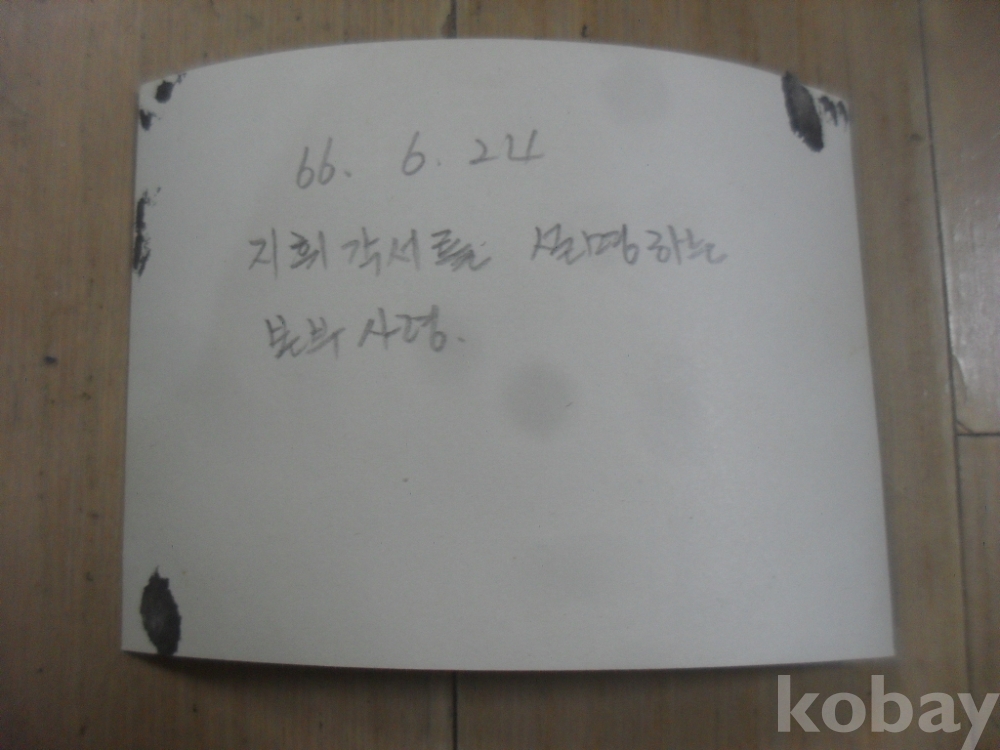 66. 6. 24
지휘각서를 설명하는
본부사령.
kobay